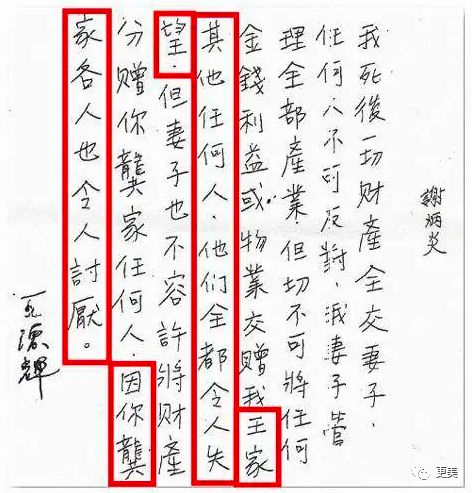 謝炳炎
我死後一切财產全交妻子.
任何人不可反對，我妻子管
理全部產業.但切不可將任何
金錢利益或物業交贈我王家
其他任何人.他们全都令人失
望.但妻子也不容許將财產
分赠你龔家任何人.因你龔
家各人也令人討厭。
王德輝
更美